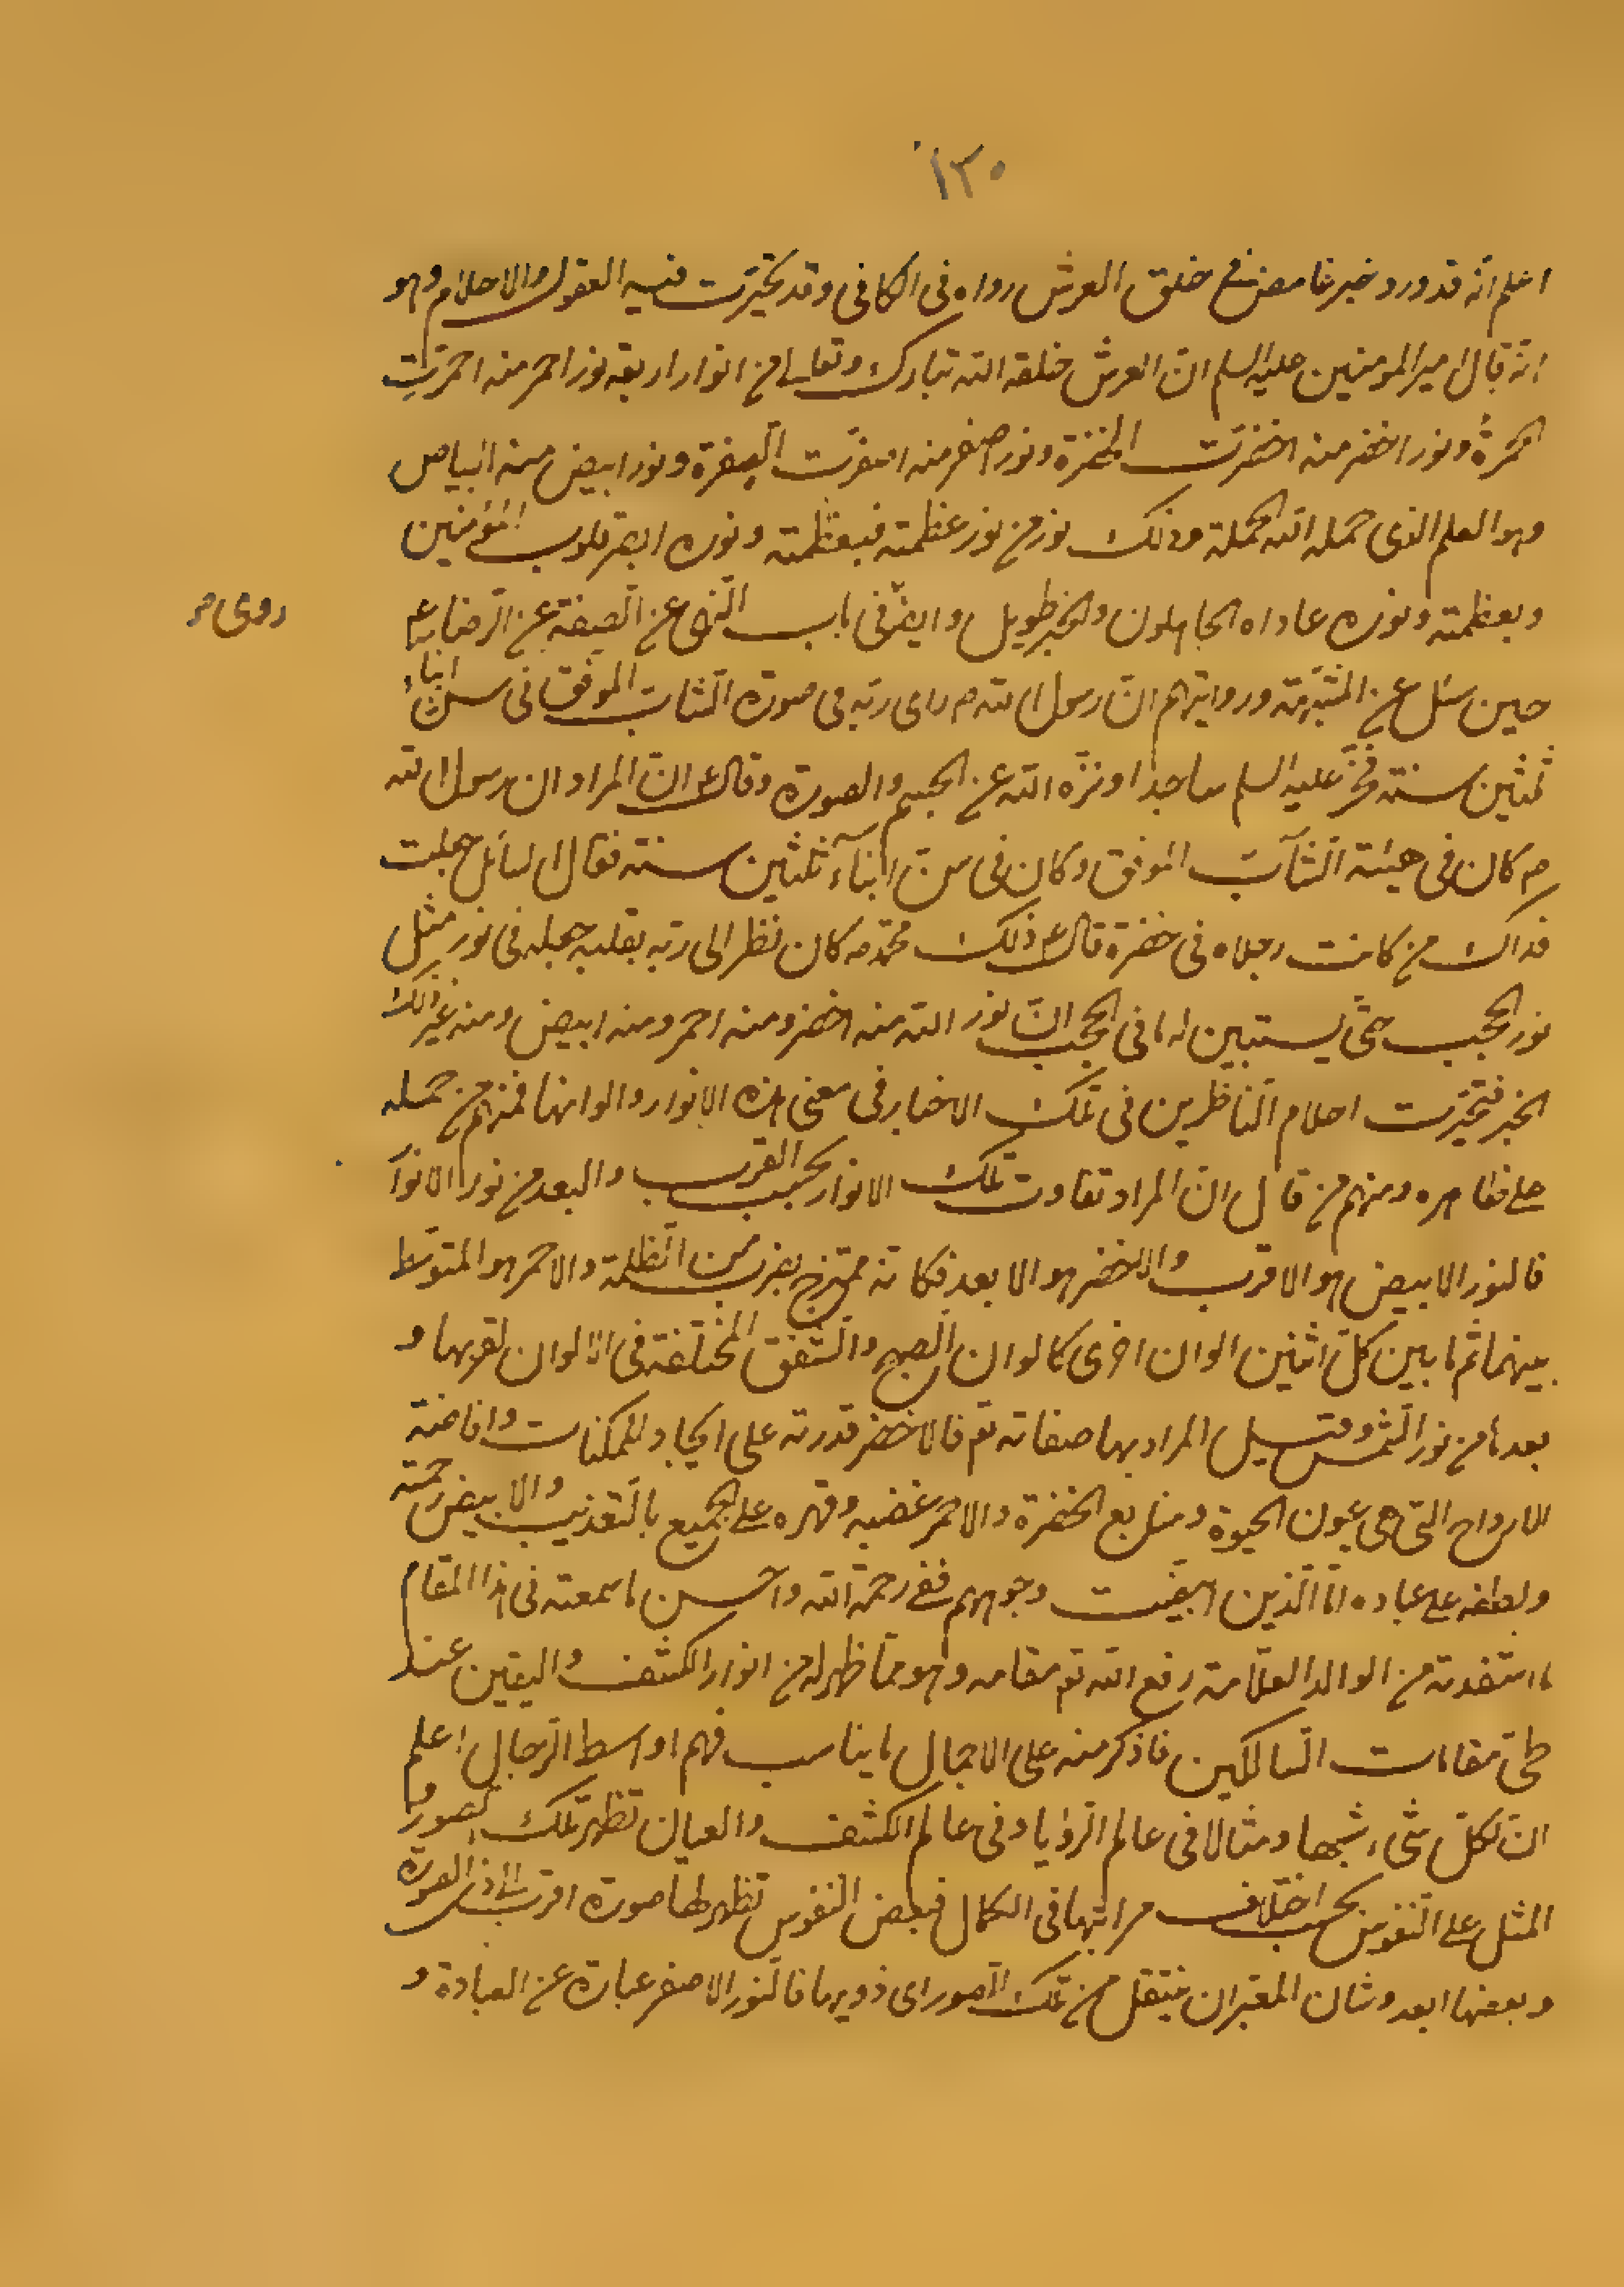 ١٣٠
اعلم انّه قد ورد خبر غامض فی خلق العرش رواه فی الکافی وقد تحیّرت فیه العقول والاحلام وهو
انّه قال امیر المومنین علیه السلم انّ العرش خلقه الله تبارک وتعالی من انوار اربعة نور احمر منه احمرّت
الحمرة ونور اخضر منه اخضرّت الخضرة ونور اصفر منه اصفرّت الصفرة ونور ابیض منه البیاض
وهو العلم الذی حمله الله الحملة وذلک نور من نور عظمته فبعظمته ونوره ابصر قلوب المؤمنین
وبعظمته ونوره عاداه الجاهلون والخبر طویل وایضّ فی باب النهی عن الصفة عن الرضا ع
روی
حین سئل عن المشبّهة وروایتهم انّ رسول الله ص رای ربّه فی صورة الشابّ الموفق فی سنّ ابناء
ثلثین سنة فخرّ علیه السلم ساجدا ونزّه الله عن الجسم والصورة وقال ع انّ المراد ان رسول الله
ص کان فی هیئة الشابّ الموفق وکان فی سنّ ابنآء ثلثین سنة فقال السائل جعلت
فداک من کانت رجلاه فی خضرة قال ع ذلک محمّد ص کان نظر الی ربّه بقلبه جعله فی نور مثل
نور الحجب حتّی یستبین له ما فی الحجب انّ نور الله منه اخضر ومنه احمر ومنه ابیض ومنه غیر ذلک
الخبر فتحیّرت احلام الناظرین فی تلک الاخبار فی معنی هذه الانوار والوانها فمنهم من حمله
علی ظاهره ومنهم من قال انّ المراد تفاوت تلک الانوار بحسب القرب والبعد من نور الانوآ
فالنور الابیض هو الاقرب والاخضر هو الابعد فکانّه ممتزج بضرب من الظلمة والاحمر هو المتوسّط
بینهما ثم ما بین کلّ اثنین الوان اخری کالوان الصبح والشفق المختلفة فی الالوان لقربها و
بعدها من نور الشمس وقیل المراد بها صفاته تع فالاخضر قدرته علی ایجاد الممکنات وافاضة
الارواح التی هی عیون الحیوة ومنابع الخضرة والاحمر غضبه وقهره علی الجمیع بالتعذیب والابیض رحمته
ولطفه علی عباده امّا الّذین ابیضّت وجوههم ففی رحمة الله واحسن ما سمعته فی هذا المقام
ما استفدته من الوالد العلّامة رفع الله تع مقامه وهو ممّا ظهر له من انوار الکشف والیقین عند
طیّ مقامات السالکین فاذکر منه علی الاجمال ما یناسب فهم اواسط الرجال اعلم
انّ لکلّ شیء شبها ومثالا فی عالم الرّؤیا وفی عالم الکشف والعیان تظهر تلک الصور و
المثل علی النفوس بحسب اختلاف مراتبها فی الکمال فبعض النفوس تظهر لها صورة اقرب الی ذی الصورة
وبعضها ابعد وشان المعبّر ان ینتقل من تلک الصور ای ذویها فالنور الاصفر عبارة عن العبادة و